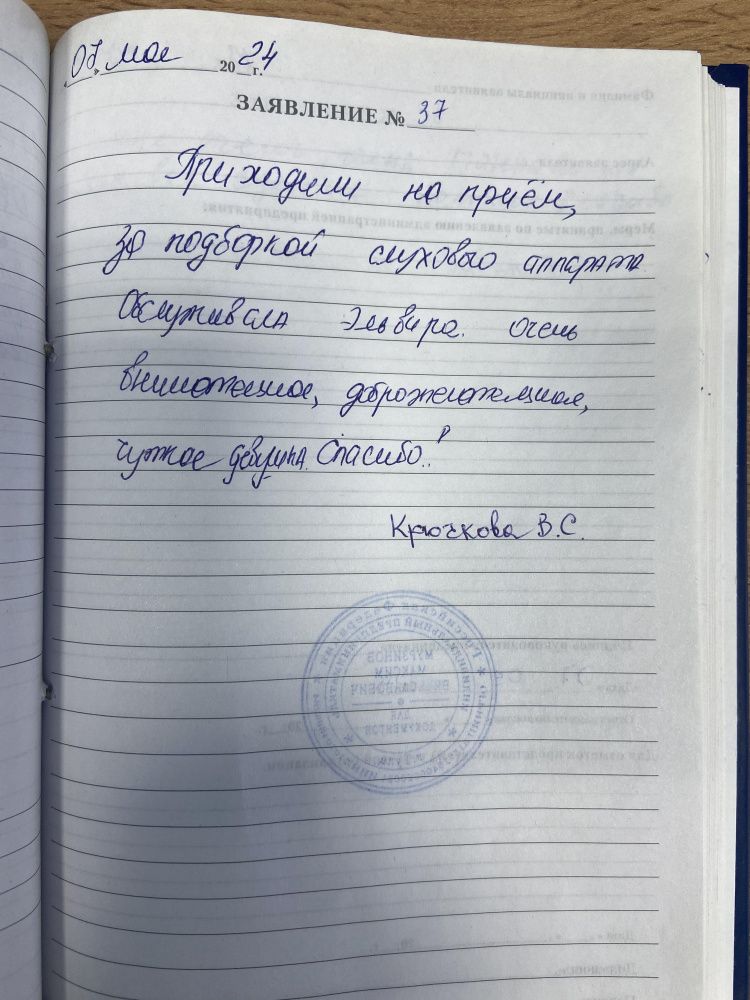 мае 2024 г.
ЗАЯВЛЕНИЕ № 37
Приходили на приём,
за подборкой слухового аппарата
Обслуживала Эльвира. очень
внимательная, доброжелательная,
чуткая девушка. Спасибо..!
Крючкова В.С.